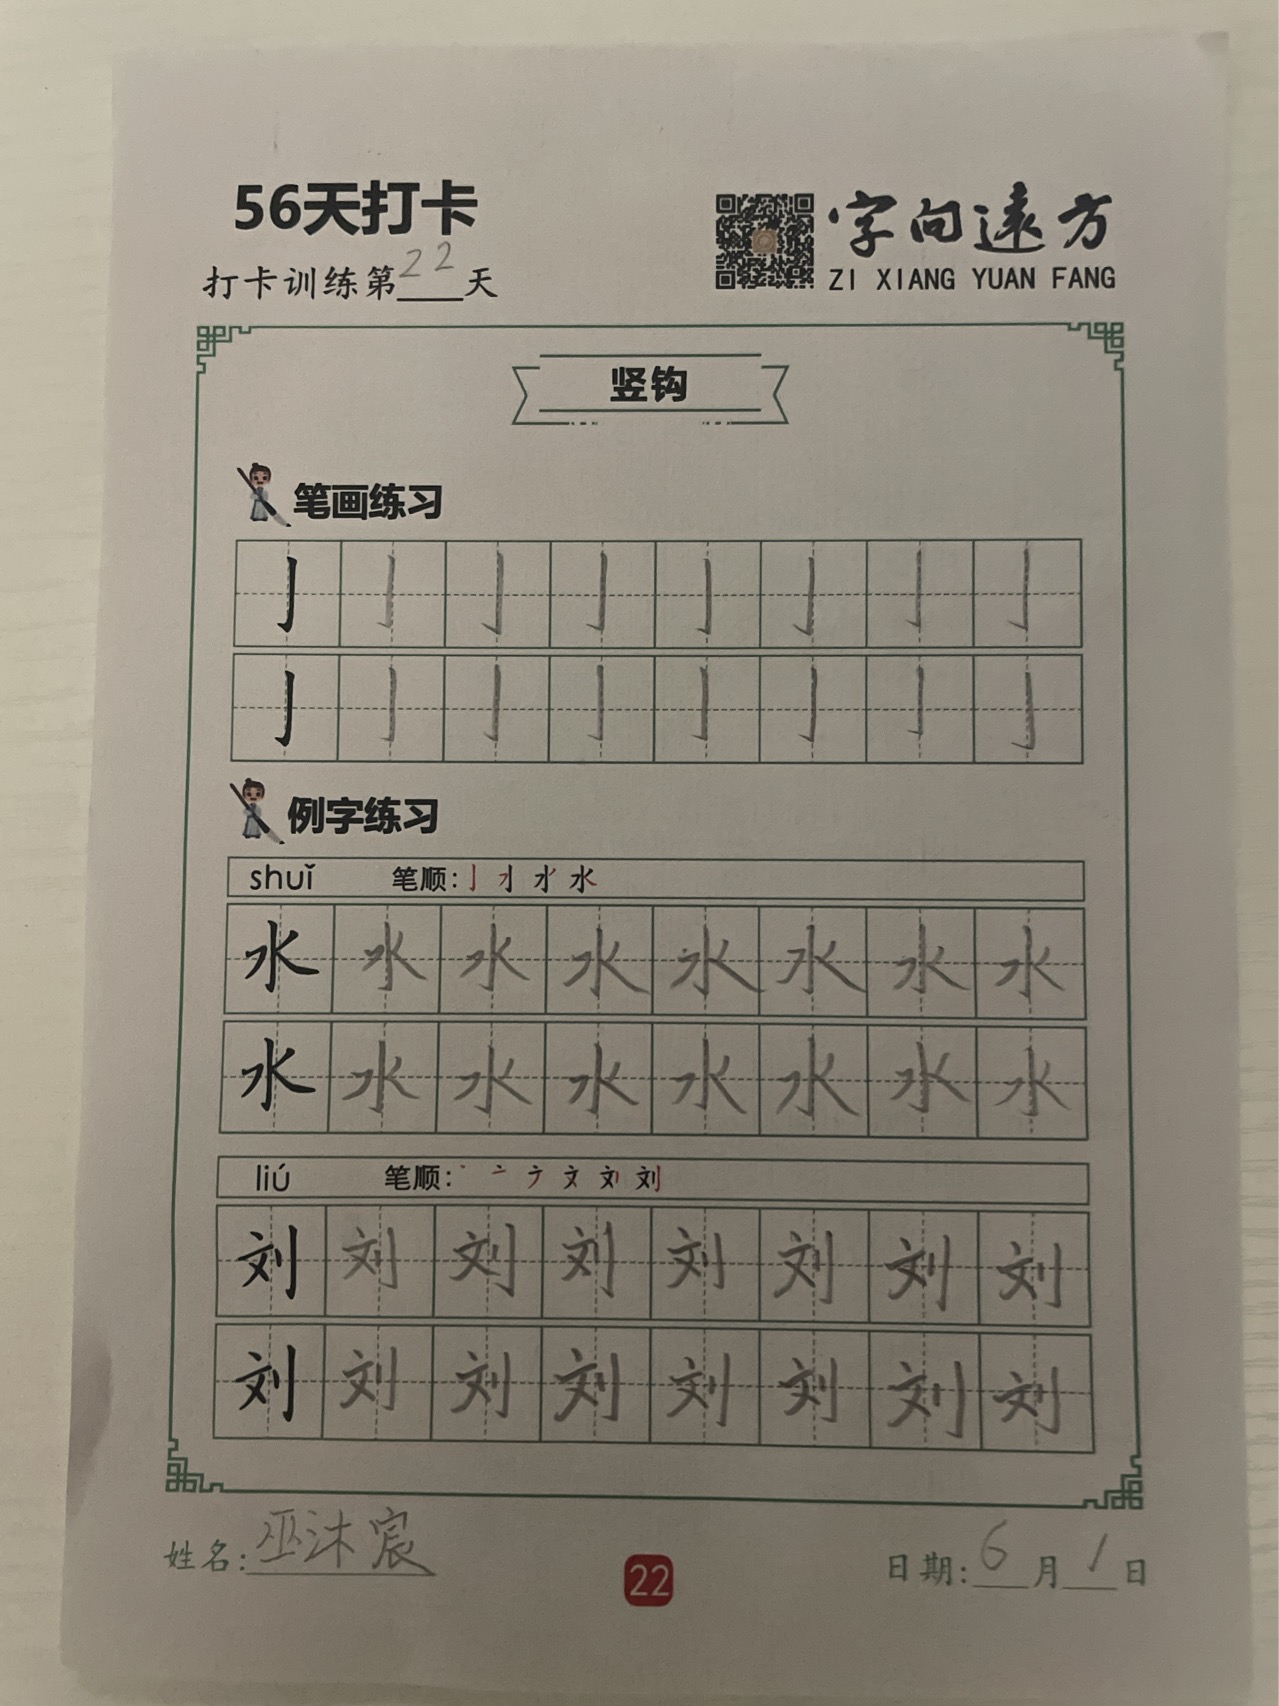 56天打卡
字向遠方
打卡训练第22天
ZI XIANG YUAN FANG
竖钩
笔画练习
亅亅亅亅亅亅亅亅
亅亅亅亅亅亅亅亅
例字练习
shuǐ 笔顺:
水水水水水水水水
水水水水水水水水
liú 笔顺:
刘刘刘刘刘刘刘刘
刘刘刘刘刘刘刘刘
姓名:巫沐宸
日期:6月1日
22